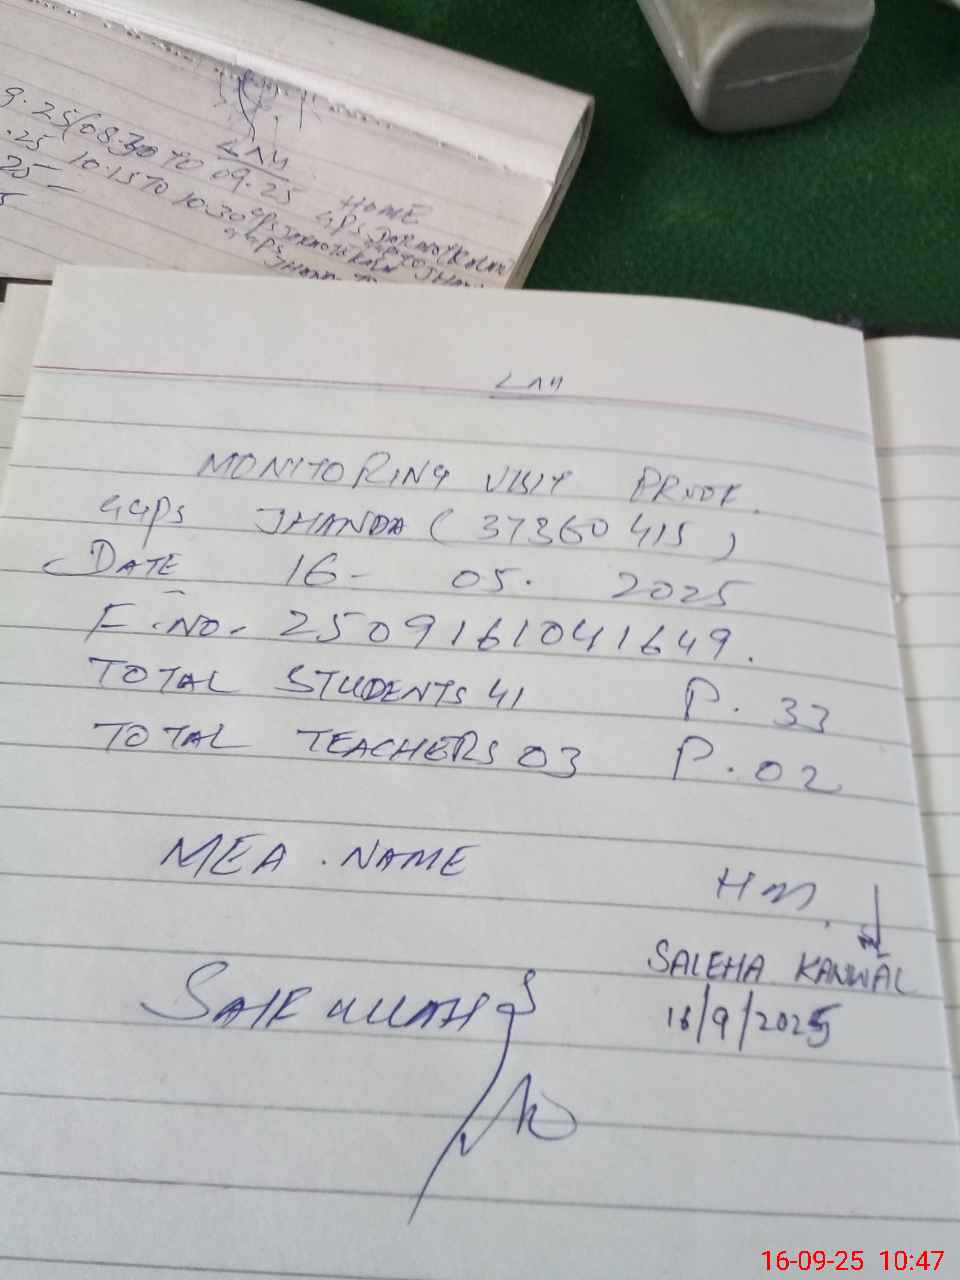 9.25(08:30 TO 09.25 HOME
.25 10:15 TO 10:30 GPS
25-
LAM
MONITORING VISIT PROOF.
GGPS JHANDA (37360415)
DATE 16- 05. 2025
F.NO. 2509161041649.
TOTAL STUDENTS 41 P. 33
TOTAL TEACHERS 03 P. 02
MEA. NAME
HM.
SALEHA KANWAL
16/9/2025
SAIF ULLAH
16-09-25 10:47